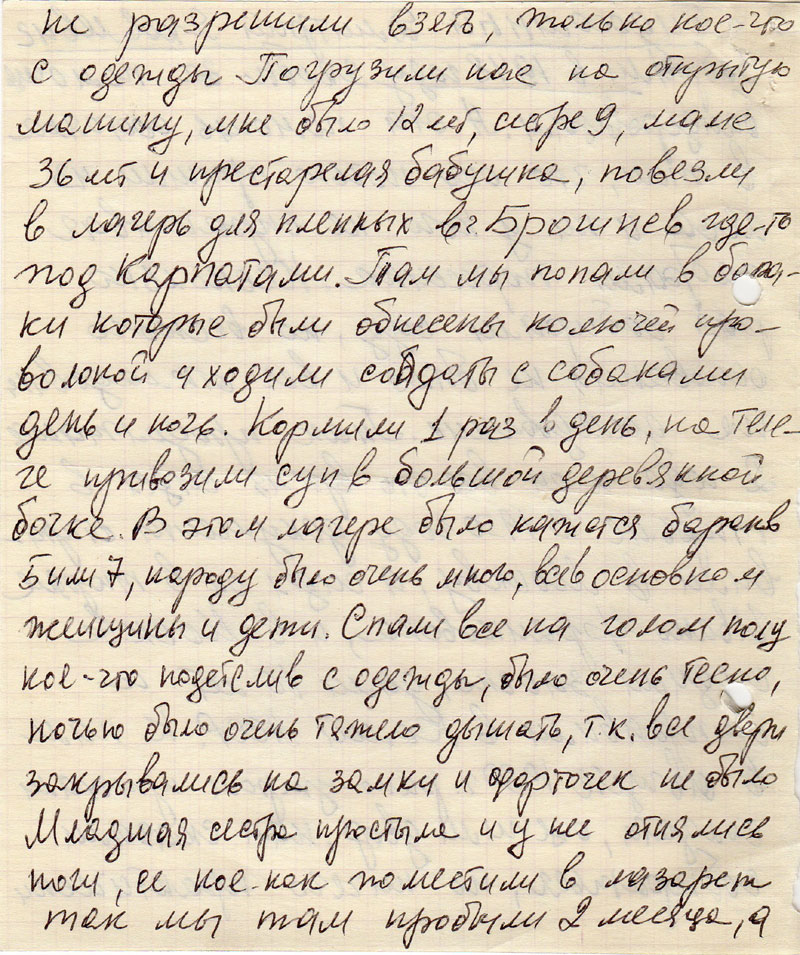 не разрешили взять, только кое-что
с одежды Погрузили нас на открытую
машину, мне было 12 лет, сестре 9, маме
36 лет и престарелая бабушка, повезли
в лагерь для пленных в г. Брошнев где-то
под Карпатами. Там мы попали в бара-
ки которые были обнесены колючей про-
волокой и ходили солдаты с собаками
день и ночь. Кормили 1 раз в день, на теле-
ге привозили суп в большой деревянной
бочке. В этом лагере было кажется бараков
5 или 7, народу было очень много, все в основном
женщины и дети. Спали все на голом полу
кое-что подстелив с одежды, было очень тесно,
ночью было очень тяжело дышать, т.к. все двери
закрывались на замки и форточек не было
Младшая сестра простыла и у нее отнялись
ноги, ее кое-как поместили в лазарет
так мы там пробыли 2 месяца, а